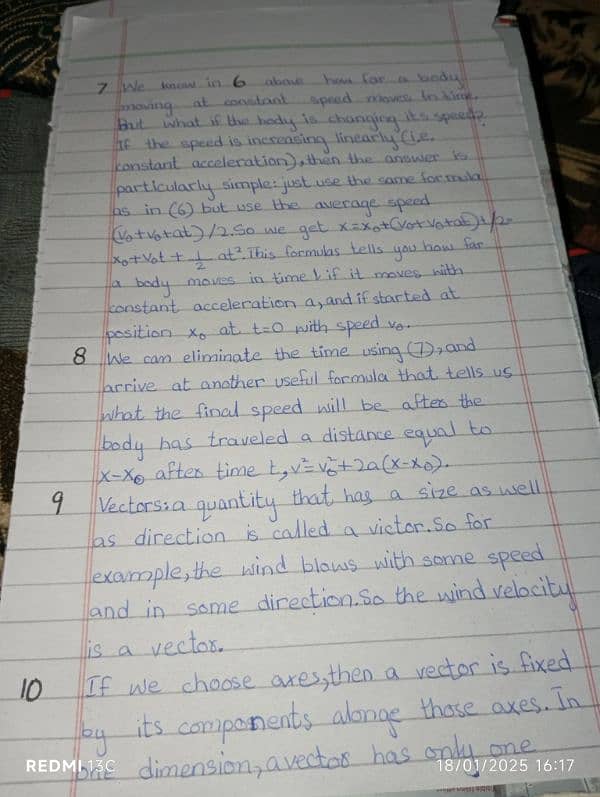 7 We know in 6 above how far a body
moving at constant speed moves in time.
But what if the body is changing its speed?
If the speed is increasing linearly (i.e.
constant acceleration), then the answer is
particularly simple: just use the same formula
as in (6) but use the average speed
(v₀+v₀+at)/2. So we get x=x₀+(v₀+v₀+at)t/2=
x₀+v₀t + 1/2 at². This formulas tells you how far
a body moves in time t if it moves with
constant acceleration a, and if started at
position x₀ at t=0 with speed v₀.
8 We can eliminate the time using (7), and
arrive at another useful formula that tells us
what the final speed will be after the
body has traveled a distance equal to
x-x₀ after time t, v²=v₀²+2a(x-x₀).
9 Vectors: a quantity that has a size as well
as direction is called a victor. So for
example, the wind blows with some speed
and in some direction. So the wind velocity
is a vector.
10 If we choose axes, then a vector is fixed
by its components alonge those axes. In
one dimension, a vector has only one
REDMI 13C
18/01/2025 16:17